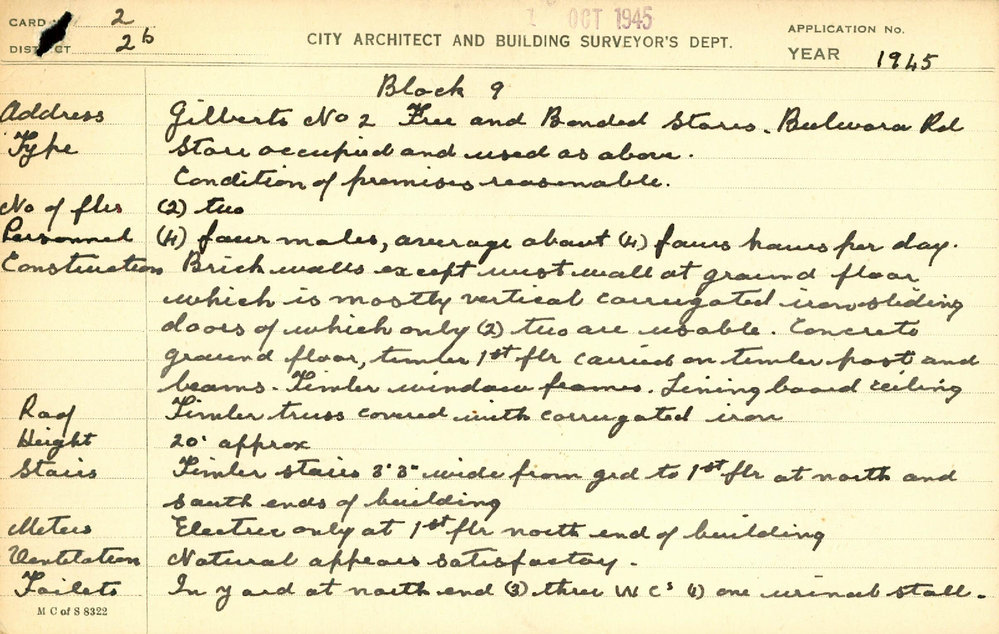 CARD No. 2
1 OCT 1945
DISTRICT 2b
CITY ARCHITECT AND BUILDING SURVEYOR'S DEPT.
APPLICATION No.
YEAR 1945
Block 9
Address Gilberts No 2 Free and Bonded Stores. Bulwara Rd
Type Store occupied and used as above.
Condition of premises reasonable.
No of flrs (2) two
Personnel (4) four males, average about (4) fours hours per day.
Construction Brick walls except west wall at ground floor
which is mostly vertical corrugated iron sliding
doors of which only (2) two are usable. Concrete
ground floor, timber 1st flr carried on timber post and
beams. Timber window frames. Lining board ceiling
Roof Timber truss covered with corrugated iron
Height 20' approx
Stairs Timber stairs 3'3" wide from grd to 1st flr at north and
south ends of building
Meters Electric only at 1st flr north end of building
Ventilation Natural appears satisfactory.
Toilets In yard at north end (3) three W C s (1) one urinal stall.
M C of S 8322